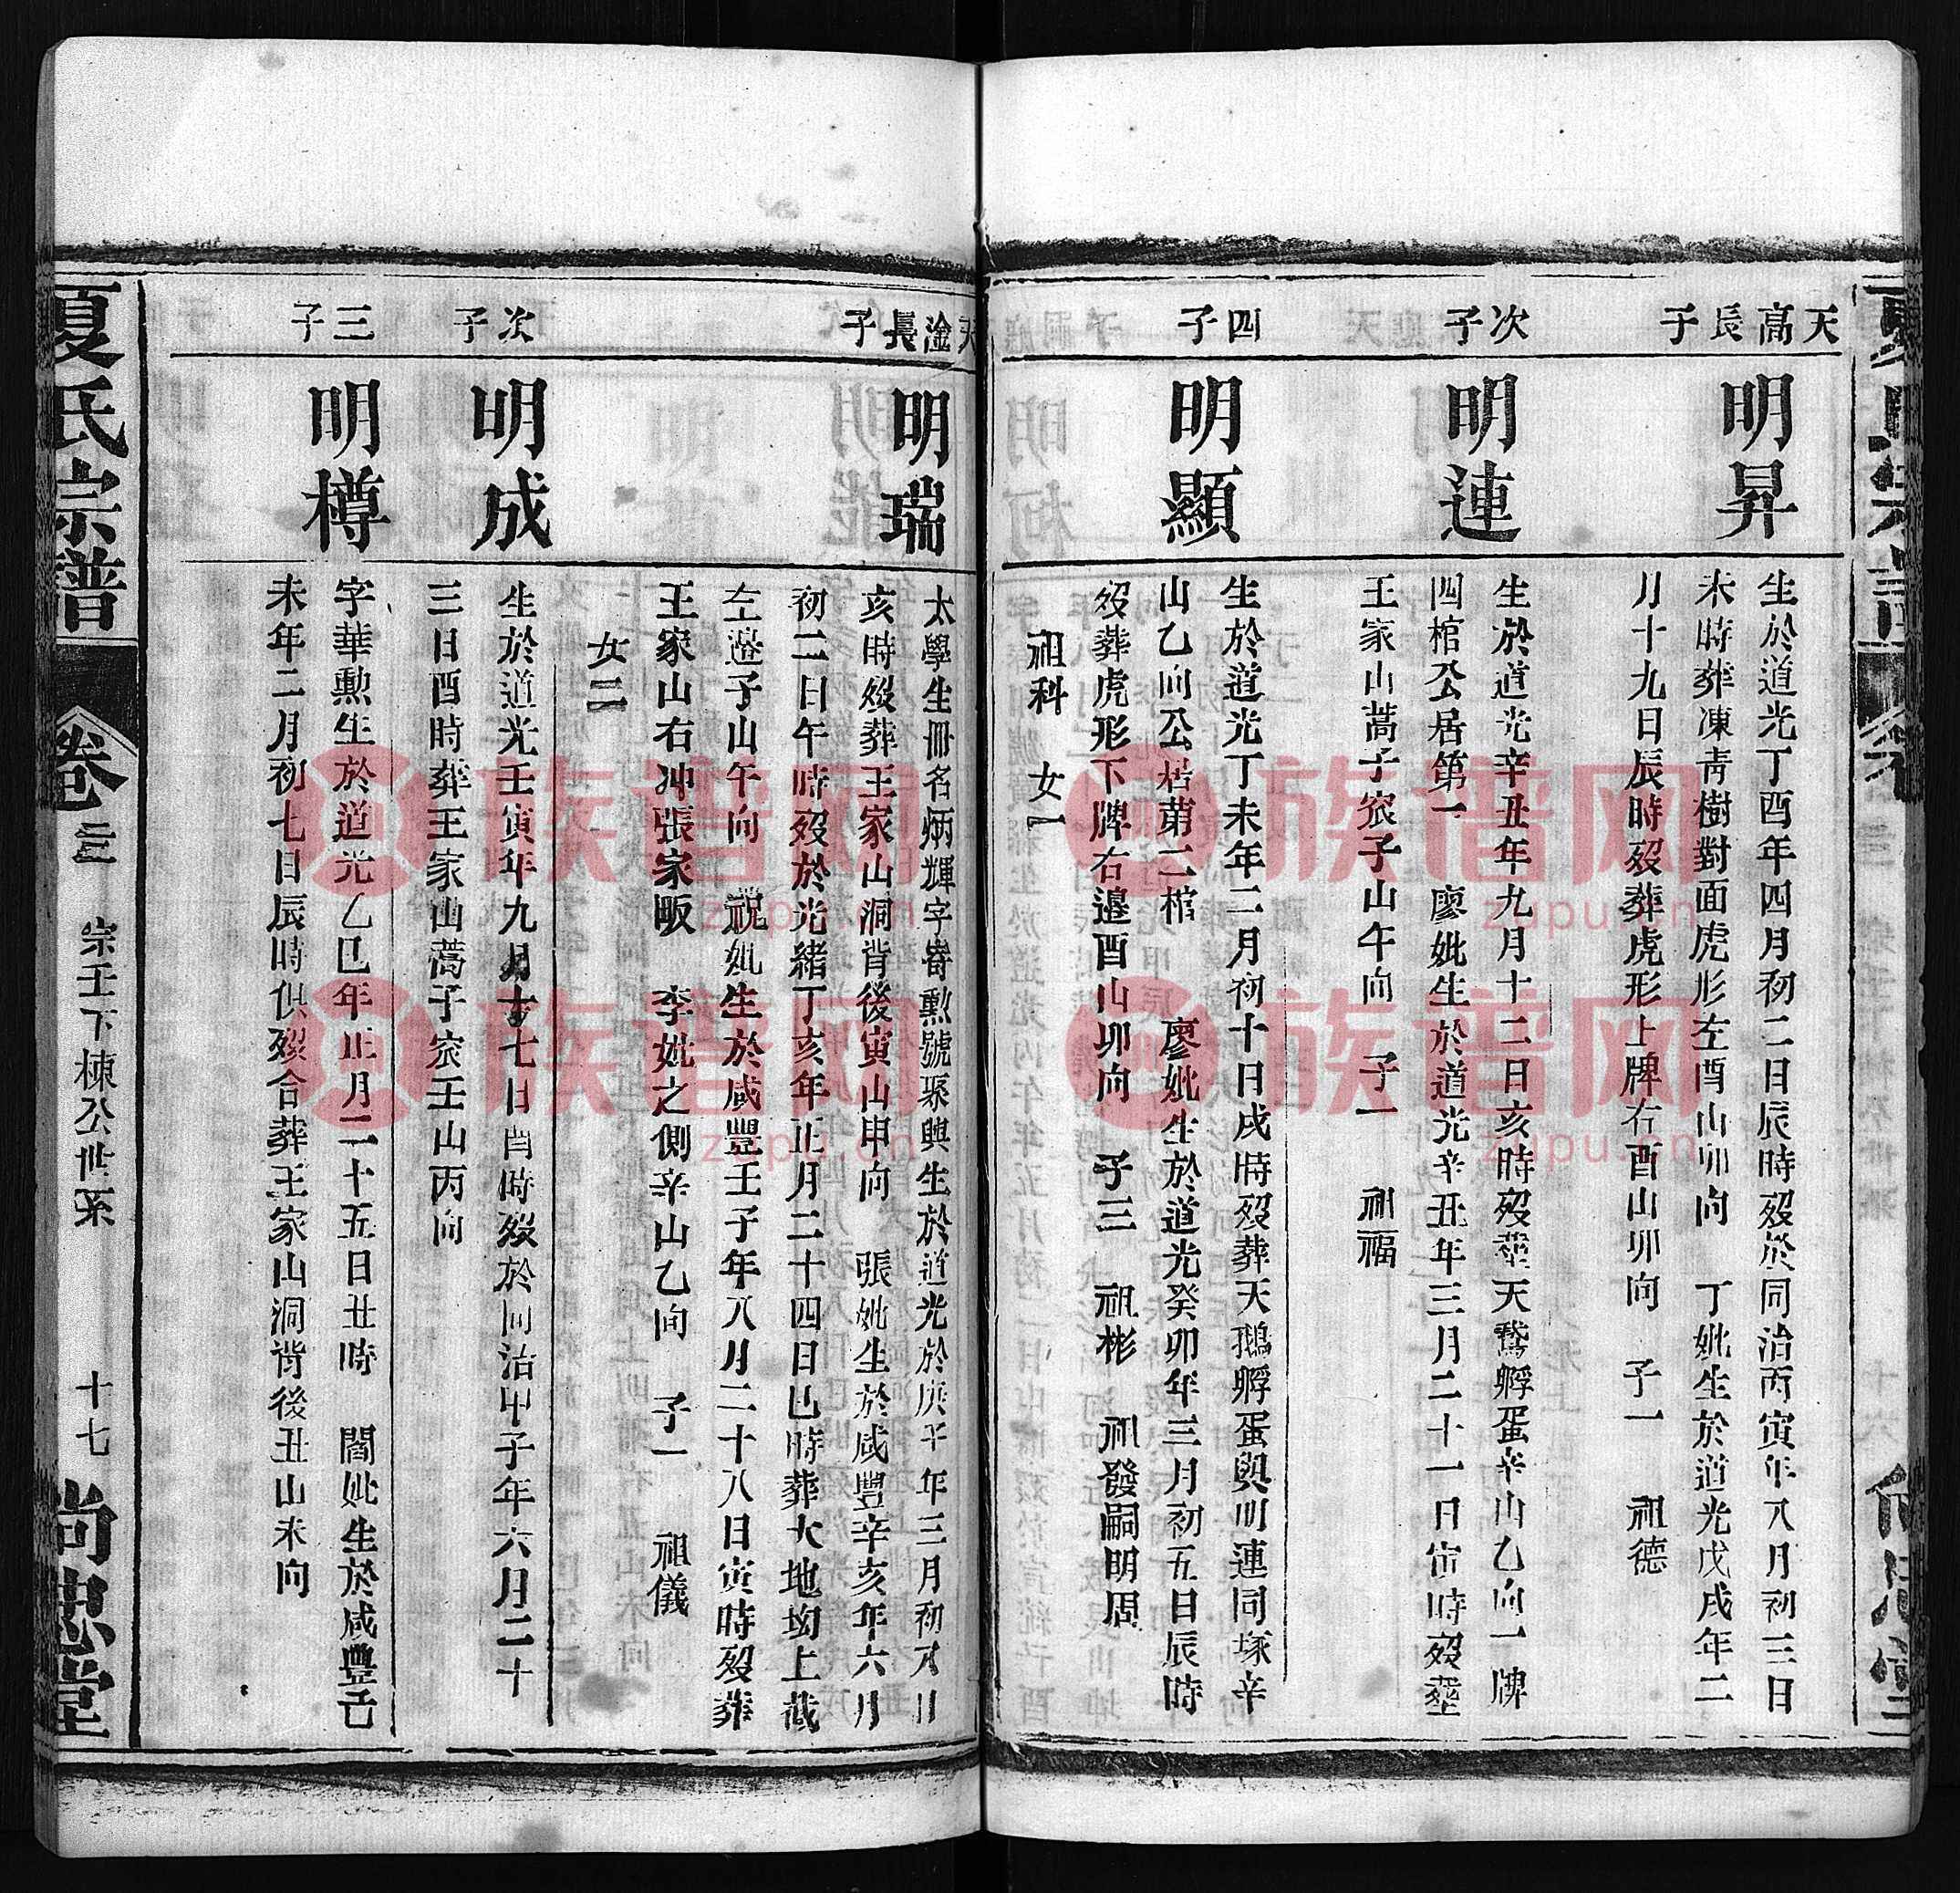 天高長子
明昇
生於道光丁酉年四月初二日辰時歿於同治丙寅年八月初三日
未時葬凍青樹對面虎形左酉山卯向　丁妣生於道光戊戌年二
月十九日辰時歿葬虎形上牌右酉山卯向　子一　祖德
次子
明連
生於道光辛丑年九月十二日亥時歿塟天鵞孵蛋辛山乙向一牌
四棺公居第一　廖妣生於道光辛丑年三月二十一日寅時歿塟
王家山蒿子窊子山午向　子一　祖福
四子
明顯
生於道光丁未年二月初十日戌時歿葬天鵝孵蛋與明連同塚辛
山乙向公居第二棺　廖妣生於道光癸卯年三月初五日辰時
歿葬虎形下牌右邉酉山卯向　子三　祖彬　祖發嗣明周
祖科　女一
天淦長子
明瑞
太學生冊名炳輝字嵜勲號聚興生於道光於庚子年三月初八日
亥時歿葬王家山洞背後寅山申向　張妣生於咸豐辛亥年六月
初二日午時歿於光緒丁亥年正月二十四日巳時葬大地坳上截
左邉子山午向　祝妣生於咸豐壬子年八月二十八日寅時歿葬
王家山右冲張家畈　李妣之側辛山乙向　子一　祖儀
女二
次子
明成
生於道光壬寅年九月十七日酉時歿於同治甲子年六月二十
三日酉時葬王家山蒿子窊壬山丙向
三子
明樽
字華勲生於道光乙巳年正月二十五日丑時　閻妣生於咸豐己
未年二月初七日辰時俱歿合葬王家山洞背後丑山未向
夏氏宗譜
卷二三
宗壬下棟公世系
十七
尚忠堂
族谱网
zupu.cn
族谱网
zupu.cn
族谱网
zupu.cn
族谱网
zupu.cn